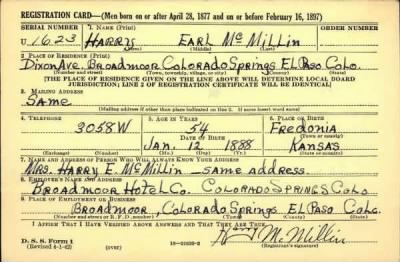 REGISTRATION CARD—(Men born on or after April 28, 1877 and on or before February 16, 1897)
SERIAL NUMBER 1. NAME (Print) ORDER NUMBER
U 1623 HARRY EARL Mc Millin
(First) (Middle) (Last)
2. PLACE OF RESIDENCE (Print)
Dixon Ave. Broadmoor Colorado Springs El Paso Colo.
(Number and street) (Town, township, village, or city) (County) (State)
[THE PLACE OF RESIDENCE GIVEN ON THE LINE ABOVE WILL DETERMINE LOCAL BOARD
JURISDICTION; LINE 2 OF REGISTRATION CERTIFICATE WILL BE IDENTICAL]
3. MAILING ADDRESS
Same
[Mailing address if other than place indicated on line 2. If same insert word same]
4. TELEPHONE 5. AGE IN YEARS 6. PLACE OF BIRTH
3058W 54 Fredonia
DATE OF BIRTH (Town or county)
Jan. 12 1888 Kansas
(Exchange) (Number) (Mo.) (Day) (Yr.) (State or country)
7. NAME AND ADDRESS OF PERSON WHO WILL ALWAYS KNOW YOUR ADDRESS
Mrs. Harry E McMillin — same address.
8. EMPLOYER'S NAME AND ADDRESS
Broadmoor Hotel Co. Colorado Springs Colo
9. PLACE OF EMPLOYMENT OR BUSINESS
Broadmoor, Colorado Springs El Paso Colo.
(Number and street or R. F. D. number) (Town) (County) (State)
I AFFIRM THAT I HAVE VERIFIED ABOVE ANSWERS AND THAT THEY ARE TRUE.
D. S. S. Form 1
(Revised 4-1-42) (over) McMillin
(Registrant's signature)